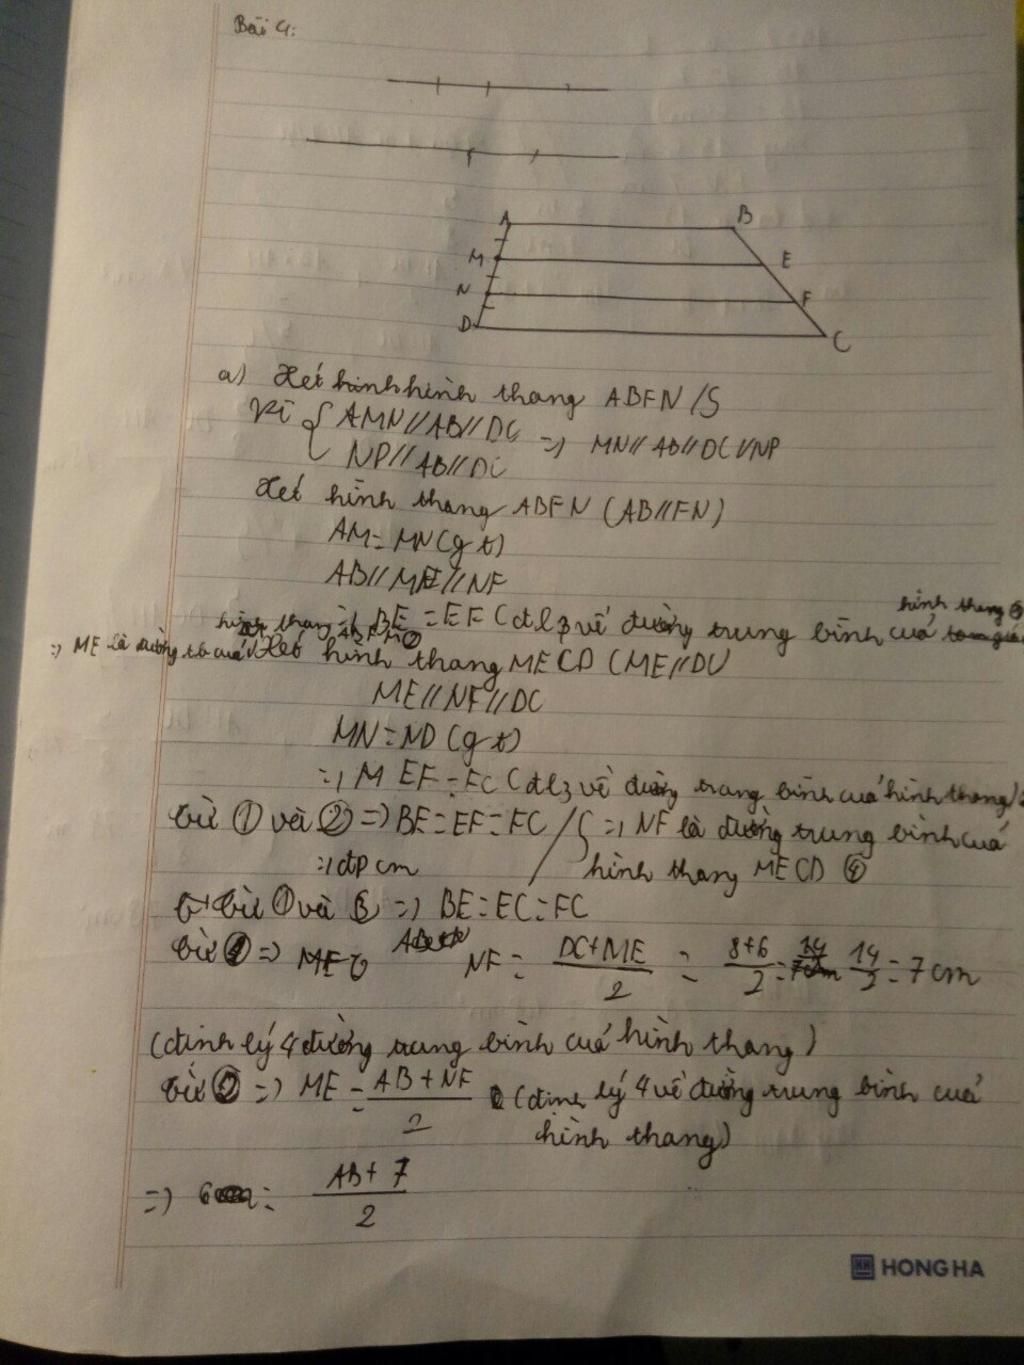 Bài 4:
A B
M E
N F
D C
a) Xét hình hình thang ABFN /S
Vì { AMN // AB // DC => MN // AB // DC // NP
NP // AB // DC
Xét hình thang ABFN (AB // FN)
AM = MN (gt)
AB // ME // NF
=> BE = EF (đl3 về đường trung bình cuả hình thang
=> ME là đường tb cuả hình thang ABFN ②
Xét hình thang MECD (ME // DC)
ME // NF // DC
MN = ND (gt)
=> EF = FC (đl3 về đường trung bình cuả hình thang)
từ ① và ② => BE = EF = FC /S => NF là đường trung bình cuả
=> đpcm hình thang MECD ④
từ ① và => BE = EC = FC
từ => NF = DC + ME / 2 = 8+6 / 2 = 14 / 2 = 7 cm
(định lý 4 đường trung bình cuả hình thang)
từ ② => ME = AB + NF / 2 (định lý 4 về đường trung bình cuả
hình thang)
=> 6 = AB + 7 / 2
HONG HA